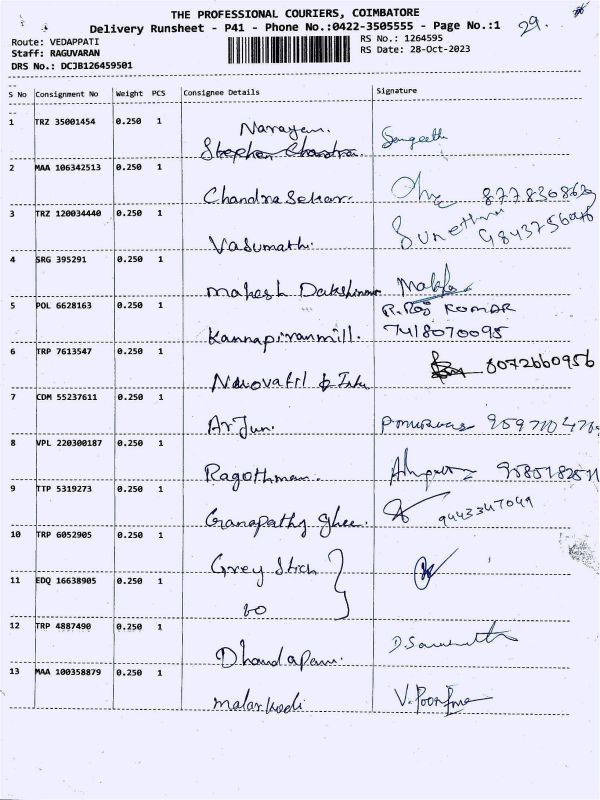 THE PROFESSIONAL COURIERS, COIMBATORE
Delivery Runsheet - P41 - Phone No.:0422-3505555 - Page No.:1
29.
Route: VEDAPPATI
RS No.: 1264595
Staff: RAGUVARAN
RS Date: 28-Oct-2023
DRS No.: DCJB126459501
S No Consignment No Weight PCS Consignee Details Signature
1 TRZ 35001454 0.250 1
Narayan. Sangeeth
2 MAA 106342513 0.250 1
Chandra Sekar.
3 TRZ 120034440 0.250 1
Vasumathi.
4 SRG 395291 0.250 1
Mahesh
5 POL 6628163 0.250 1 P. Raj KUMAR
Kannapiranmill. 7418070095
6 TRP 7613547 0.250 1 8072660956
7 CDM 55237611 0.250 1
Arjun.
8 VPL 220300187 0.250 1
Ragothman.
9 TTP 5319273 0.250 1
Ganapathy ghee. 9443347049
10 TRP 6052905 0.250 1
Grey Stich
11 EDQ 16638905 0.250 1
12 TRP 4887490 0.250 1
Dhandapani.
13 MAA 100358879 0.250 1
malarkodi V.Poorma